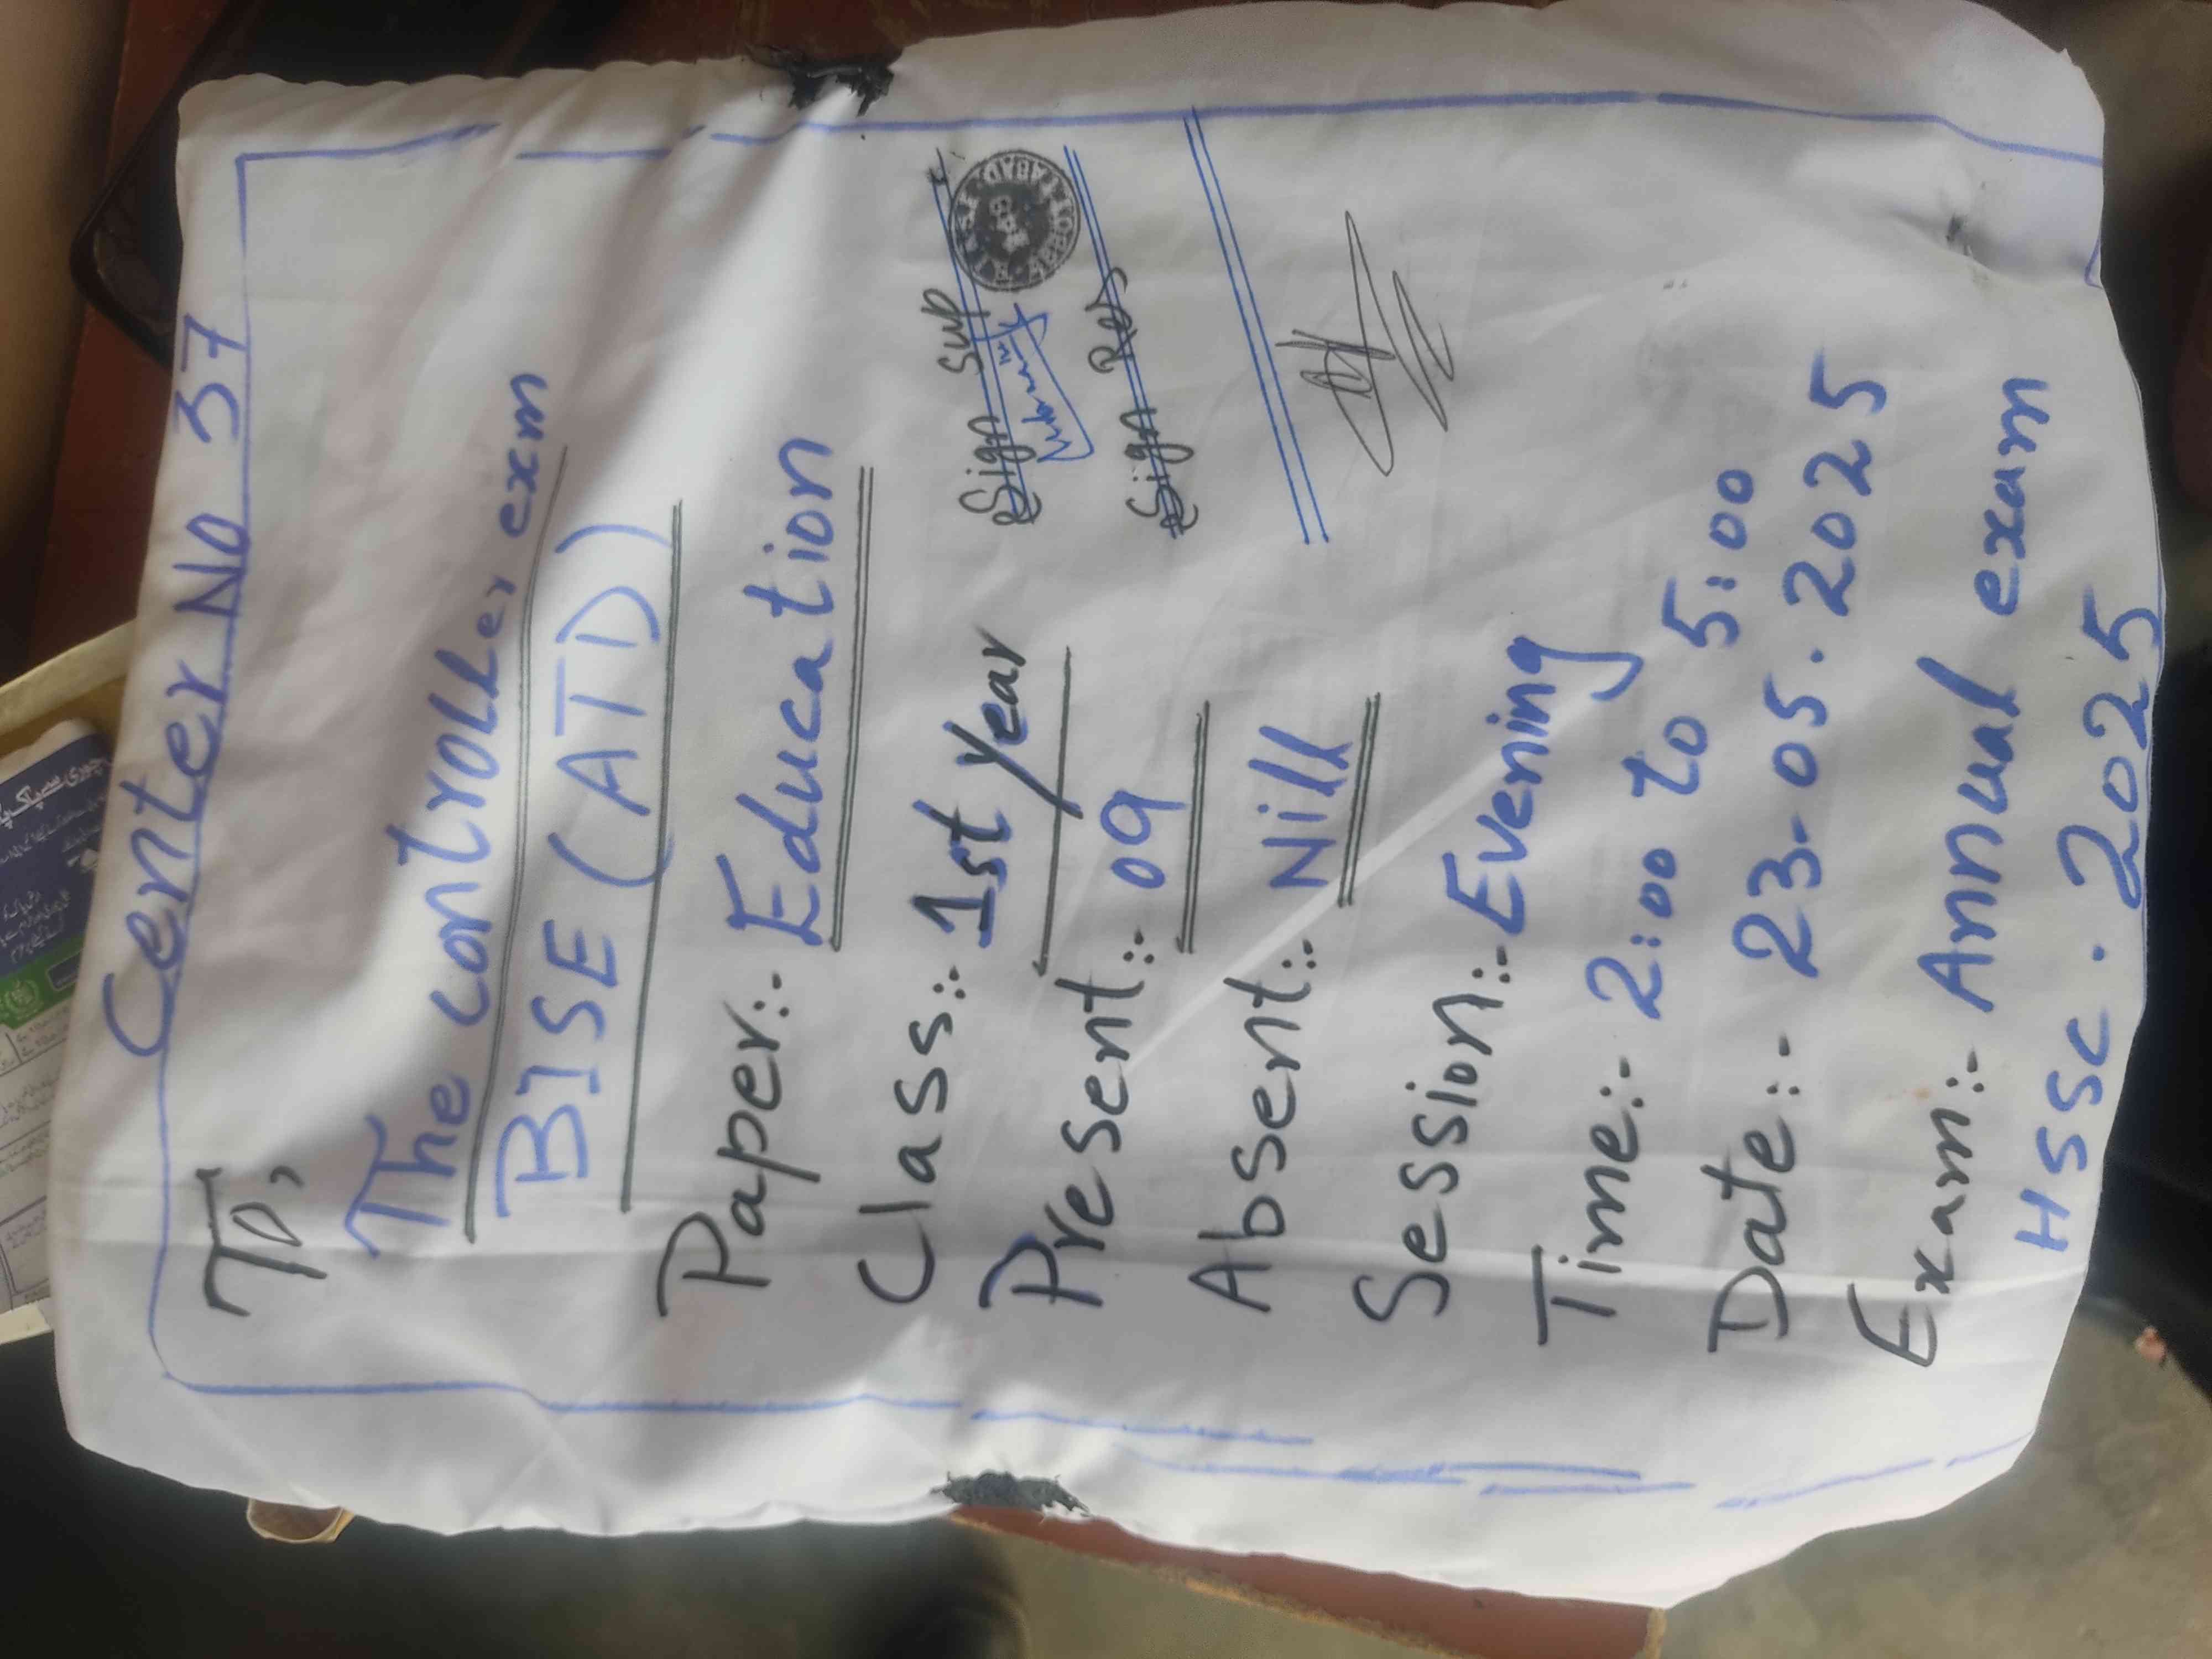 Center No 37
To,
The controller exm
BISE (ATD)
Paper:- Education
Class:- 1st year
Present:- 09
Absent:- Nill
Session:- Evening
Time:- 2:00 to 5:00
Date:- 23-05.2025
Exam:- Annual exam
HSSC. 2025
Sign Sup
Sign Res